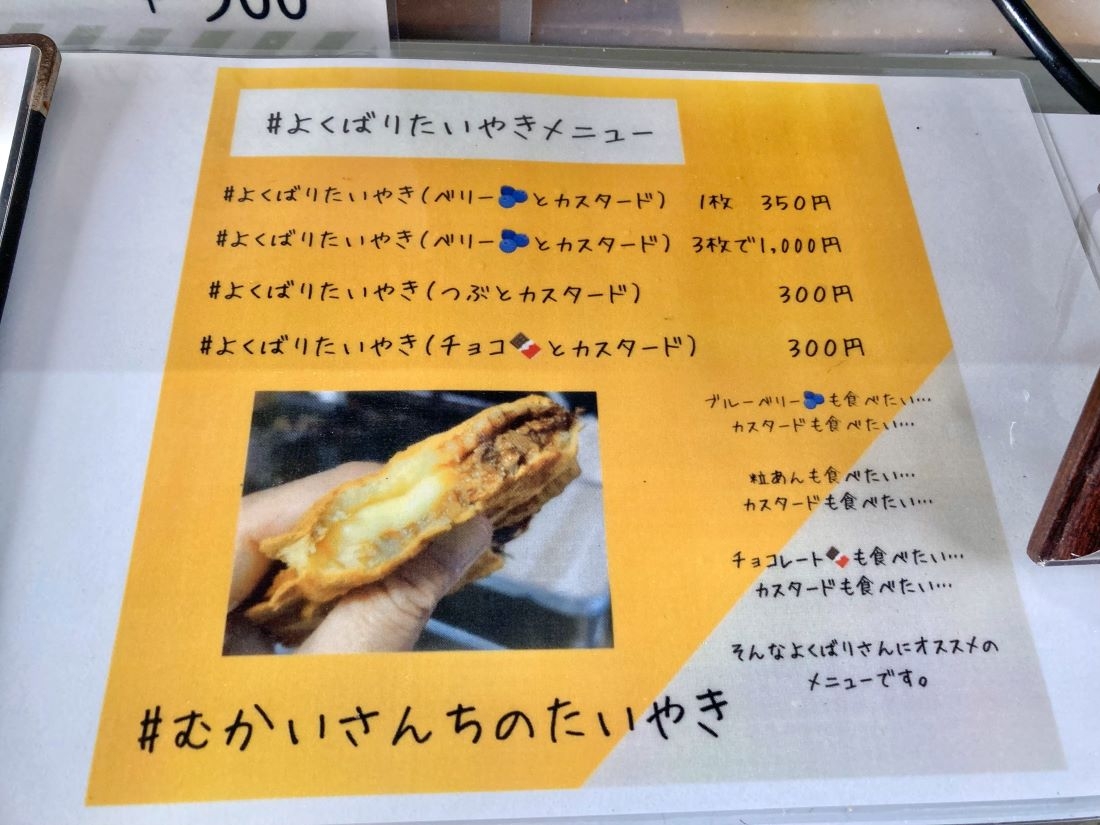 #よくばりたいやきメニュー
#よくばりたいやき(ベリー🫐とカスタード) 1枚 350円
#よくばりたいやき(ベリー🫐とカスタード) 3枚で1,000円
#よくばりたいやき(つぶとカスタード) 300円
#よくばりたいやき(チョコ🍫とカスタード) 300円
ブルーベリー🫐も食べたい…
カスタードも食べたい…
粒あんも食べたい…
カスタードも食べたい…
チョコレート🍫も食べたい…
カスタードも食べたい…
そんなよくばりさんにオススメの
メニューです。
#むかいさんちのたいやき